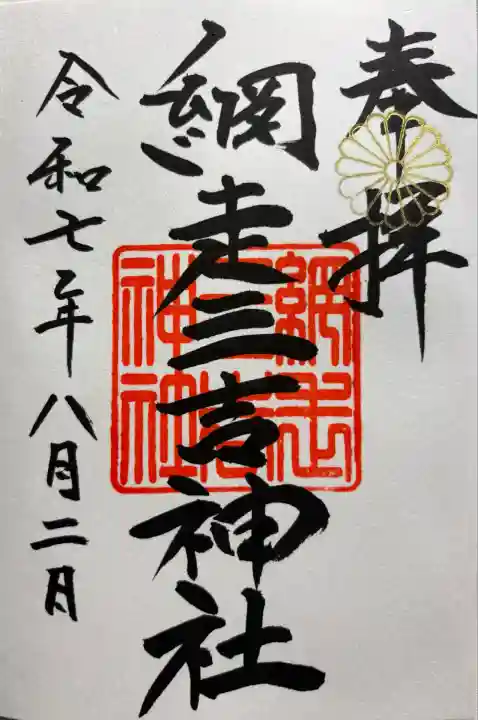 奉拝
網走三吉神社
網走三吉神社
令和七年八月二日